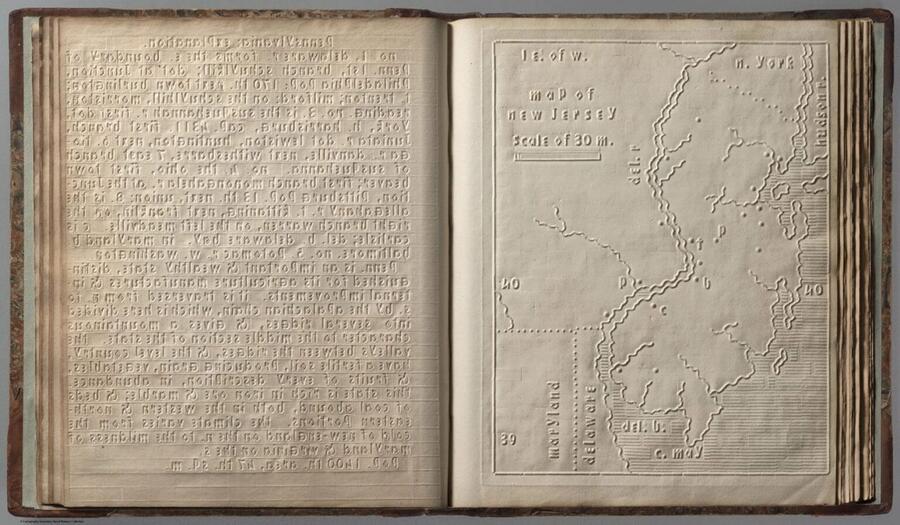 Pennsylvania: explanation.
no. 1. delaware r. forms the e. boundary of
Penn. 1st. branch schuylkill; dot at junction,
Philadelphia Pop: 170 th. next town burlington;
t, trenton; milford: on the schuylkill, morriston,
reading. no. is the susquehannar. first dot,
York, h. harrisburg, cap. 4311. first branch,
Juniata r. dot lewiston, huntington, next
danville, next wilksbarre. east branch
of susquehanna. no. 4 the ohio, first town
beaver; first branch monongahelar. at the junc-
tion, Pittsburg Pop. 13 th. next, union: 8. is the
alleghany r. kittaning, next franklin, on the
right branch warren, on the left meadville. c is
carlisle; del. b. delaware bay. in maryland b
baltimore, no. 5. Potomac r. w. washington
Penn. is an important & wealthy state, distin-
guished for its agriculture manufactures & in-
ternal improvements. it is traversed from n. to
s. by the apalachian chain, which is here divided
into several ridges, & gives a mountainous
character to the middle section of the state. the
valleys between the ridges, & the level country,
have a fertile soil, producing grain, vegetables,
& fruits of every description, in abundance.
this state is rich in iron ore & marble; & beds
of coal abound, both in the western & north-
eastern portions. the climate varies from the
cold of new-england on the n. to the mildness of
maryland & virginia on the s.
Pop. 1400 th. area. 47. th. sq. m.
1 e. of w.
n. york
map of
new Jersey
scale of 30 m.
hudson r.
del. r
p
t
40
p
b
40
c
maryland
delaware
39
del. b.
c. may